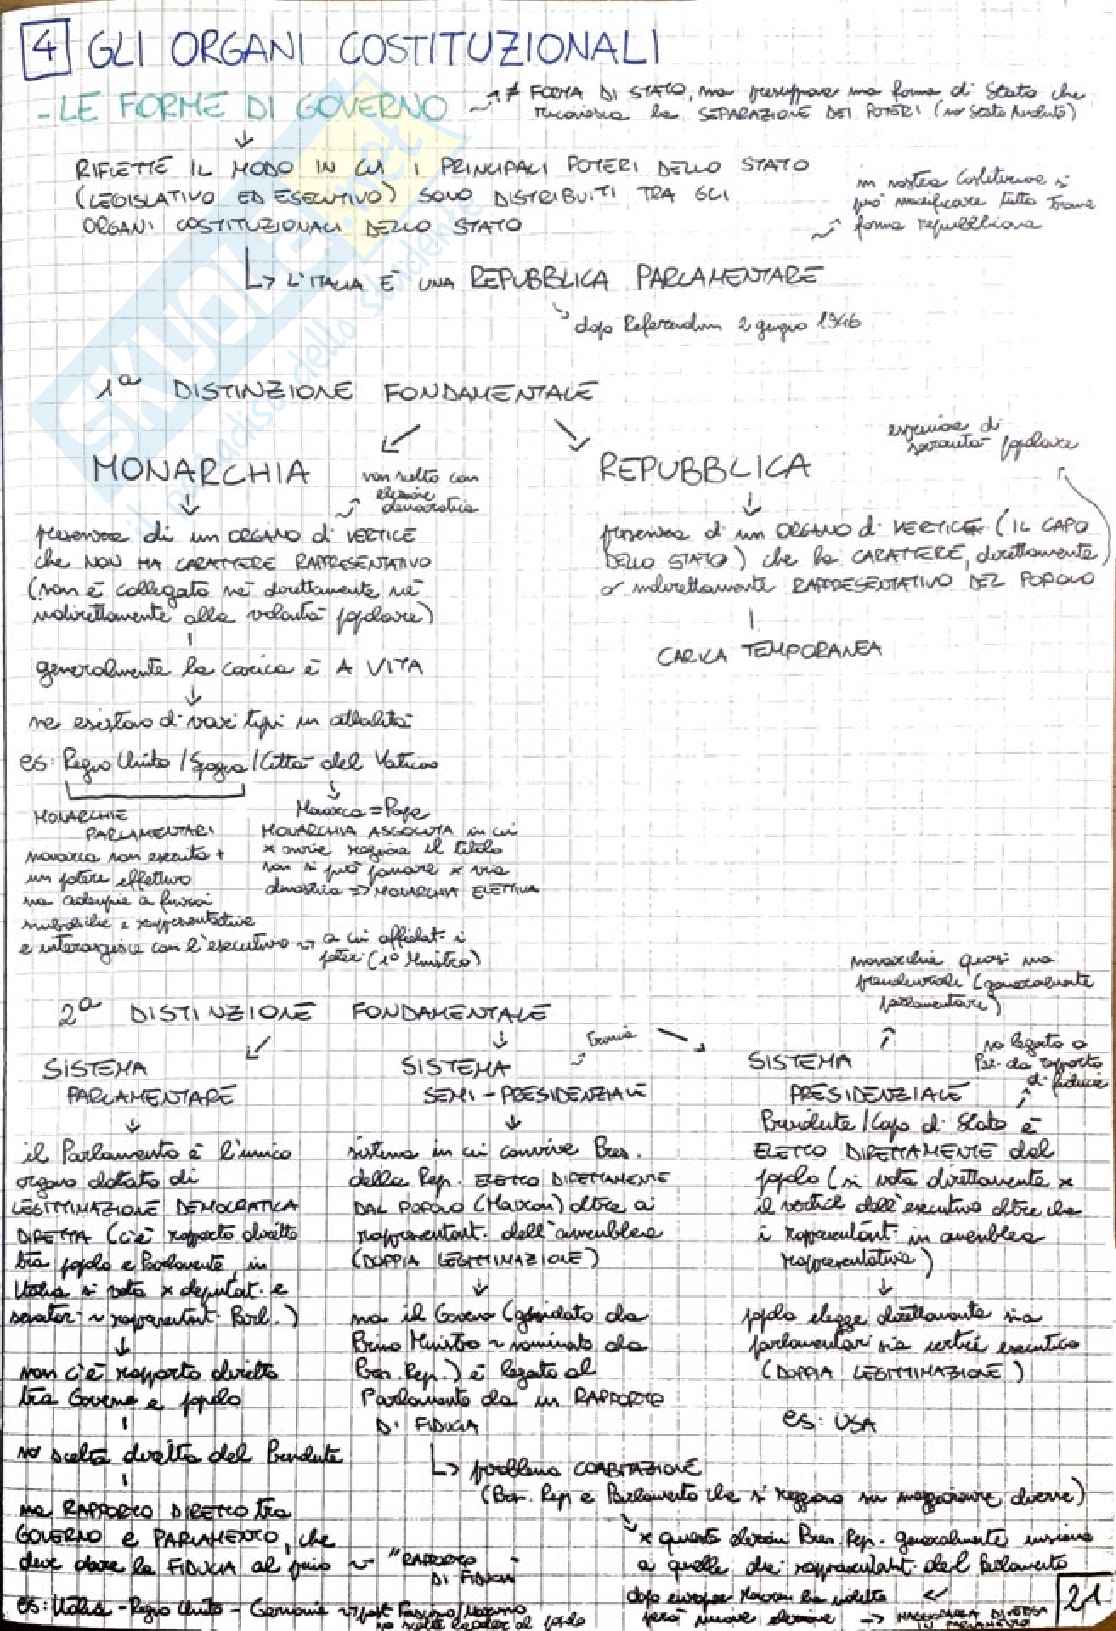 4 GLI ORGANI COSTITUZIONALI
- LE FORME DI GOVERNO
≠ FORMA DI STATO, ma presuppone una forma di Stato che
riconosca la SEPARAZIONE DEI POTERI (no Stato Assoluto)
RIFLETTE IL MODO IN CUI I PRINCIPALI POTERI DELLO STATO
(LEGISLATIVO ED ESECUTIVO) SONO DISTRIBUITI TRA GLI
ORGANI COSTITUZIONALI DELLO STATO
in nostra Costituzione si
può modificare tutto tranne
forma repubblicana
L'ITALIA È UNA REPUBBLICA PARLAMENTARE
dopo Referendum 2 giugno 1946
1ª DISTINZIONE FONDAMENTALE
MONARCHIA
non scelto con
elezione
democratica
presenza di un ORGANO di VERTICE
che NON HA CARATTERE RAPPRESENTATIVO
(non è collegato né direttamente né
indirettamente alla volontà popolare)
generalmente la carica è A VITA
ne esistono di vari tipi in attualità
es: Regno Unito / Spagna / Città del Vaticano
MONARCHIE
PARLAMENTARI
monarca non esercita +
un potere effettivo
ma adempie a funzioni
simboliche e rappresentative
e interagisce con l'esecutivo
a cui affidati i
poteri (1º Ministro)
Monarca = Papa
MONARCHIA ASSOLUTA in cui
x morire reggere il titolo
non si può passare x via
dinastica => MONARCHIA ELETTIVA
REPUBBLICA
espressione di
sovranità popolare
presenza di un ORGANO di VERTICE (IL CAPO
DELLO STATO) che ha CARATTERE, direttamente
o indirettamente RAPPRESENTATIVO DEL POPOLO
CARICA TEMPORANEA
2ª DISTINZIONE FONDAMENTALE
monarchie quasi mai
presidenziali (generalmente
parlamentare)
SISTEMA
PARLAMENTARE
il Parlamento è l'unico
organo dotato di
LEGITTIMAZIONE DEMOCRATICA
DIRETTA (c'è rapporto diretto
tra popolo e Parlamento, in
Italia si vota x deputati e
senatori rappresentanti Parl.)
non c'è rapporto diretto
tra Governo e popolo
no scelta diretta del Presidente
ma RAPPORTO DIRETTO tra
GOVERNO e PARLAMENTO, che
deve dare la FIDUCIA al primo
"RAPPORTO
DI FIDUCIA
es: Italia - Regno Unito - Germania
SISTEMA
SEMI-PRESIDENZIALE
Francia
sistema in cui convive Pres.
della Rep. ELETTO DIRETTAMENTE
DAL POPOLO (Macron) oltre ai
rappresentanti dell'assemblea
(DOPPIA LEGITTIMAZIONE)
ma il Governo (guidato da
Primo Ministro nominato da
Pres. Rep.) è legato al
Parlamento da un RAPPORTO
DI FIDUCIA
problema COABITAZIONE
(Pres. Rep e Parlamento che si reggono su maggioranze diverse)
x questo elezioni Pres. Rep. generalmente insieme
a quelle dei rappresentanti del Parlamento
dopo europee Macron ha indetto
però nuove elezioni -> MAGGIORANZA DIVERSA
IN PARLAMENTO
SISTEMA
PRESIDENZIALE
no legato a
Par. da rapporto
di fiducia
Presidente / Capo di Stato è
ELETTO DIRETTAMENTE dal
popolo (si vota direttamente x
il vertice dell'esecutivo oltre che
i rappresentanti in assemblea
rappresentativa)
popolo elegge direttamente sia
parlamentari sia vertice esecutivo
(DOPPIA LEGITTIMAZIONE)
es: USA
21